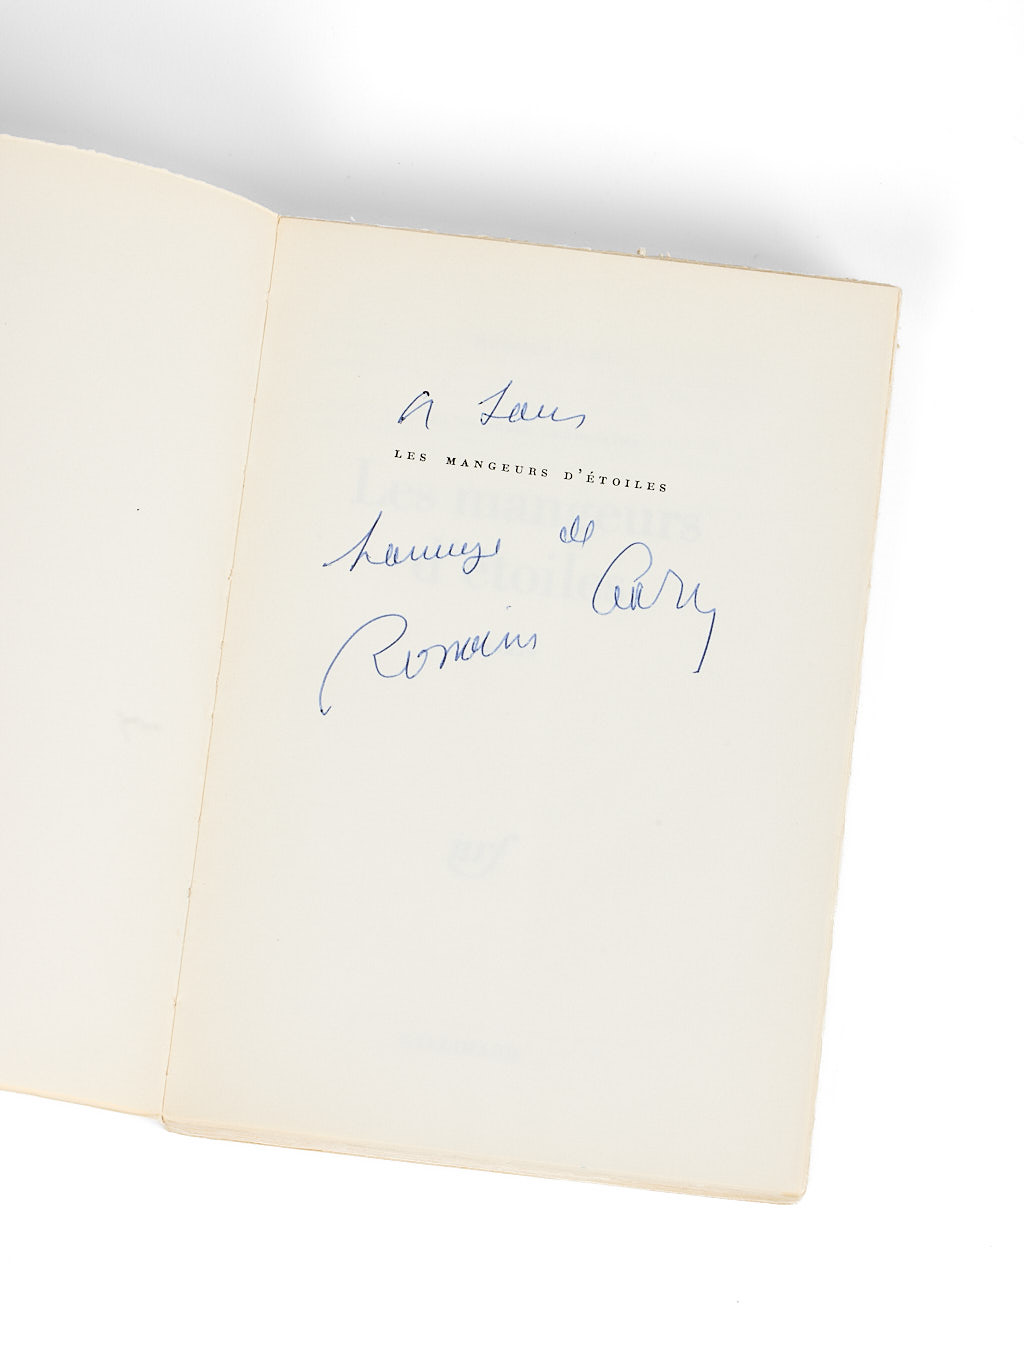 A
LES MANGEURS D'ÉTOILES
hommage de
Romain Gary